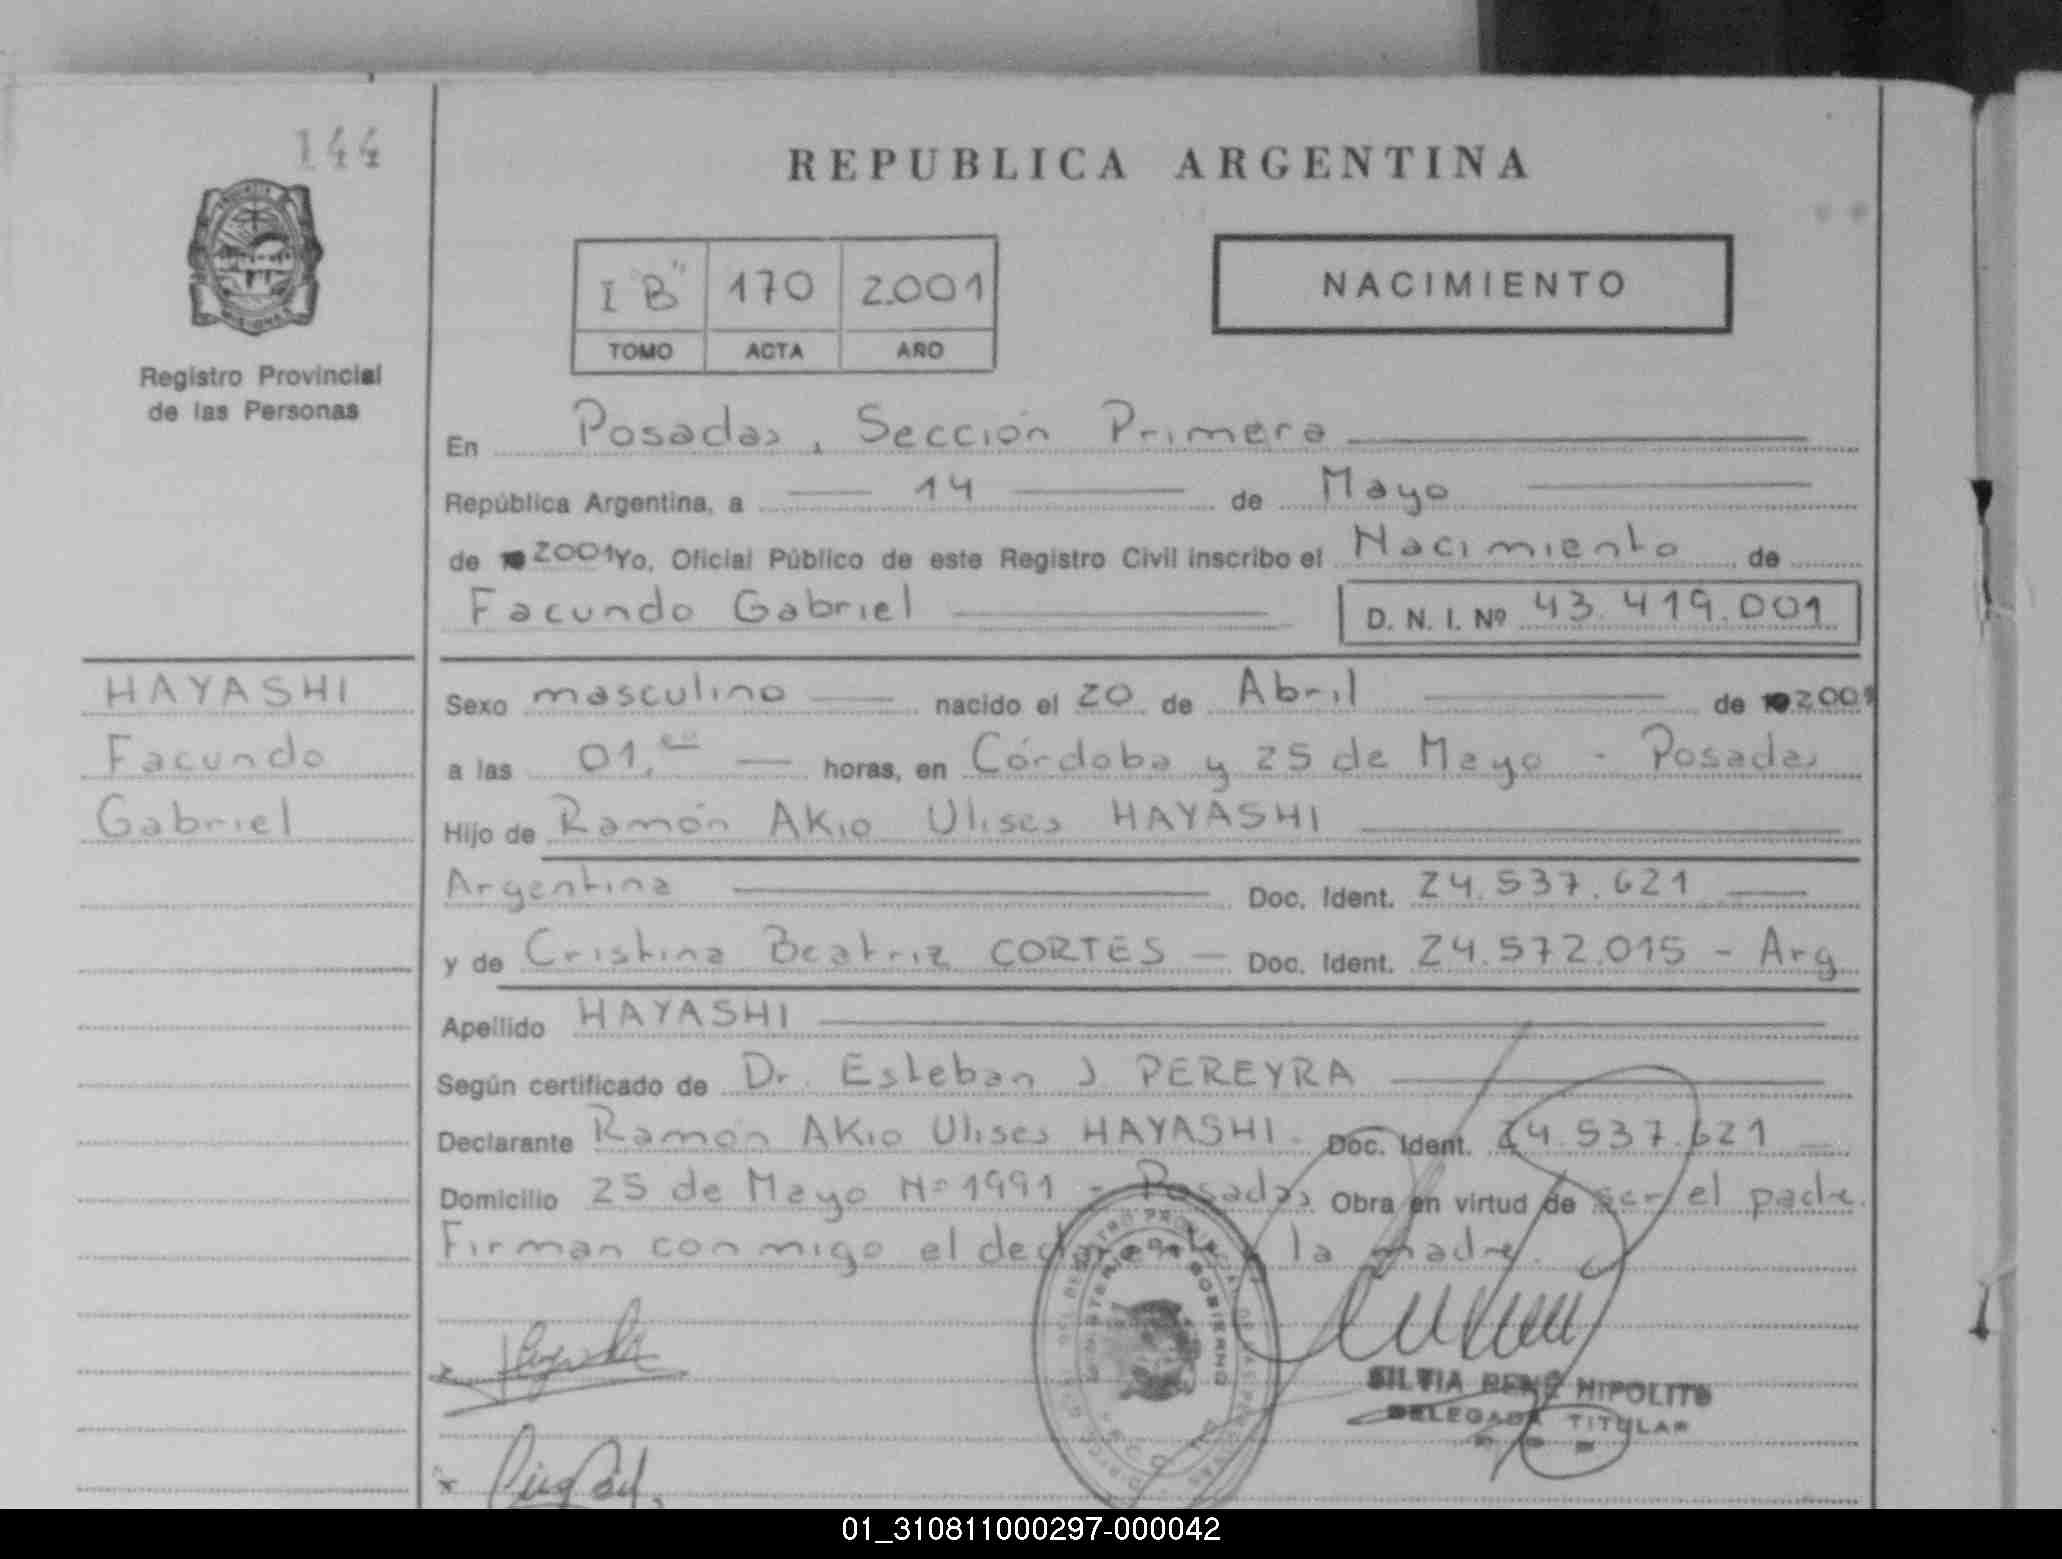 144
REPUBLICA ARGENTINA
I "B" 170 2.001
TOMO ACTA AÑO
NACIMIENTO
Registro Provincial
de las Personas
En Posadas, Sección Primera
República Argentina, a 14 de Mayo
de 2001 Yo, Oficial Público de este Registro Civil inscribo el Nacimiento de
Facundo Gabriel D. N. I. Nº 43.419.001
HAYASHI
Facundo
Gabriel
Sexo masculino nacido el 20 de Abril de 2001
a las 01, horas, en Córdoba y 25 de Mayo - Posadas
Hijo de Ramón Akio Ulises HAYASHI
Argentina Doc. Ident. 24.537.621
y de Cristina Beatriz CORTES - Doc. Ident. 24.572.015 - Arg
Apellido HAYASHI
Según certificado de Dr. Esteban J PEREYRA
Declarante Ramón Akio Ulises HAYASHI - Doc. Ident. 24.537.621
Domicilio 25 de Mayo Nº 1991 - Posadas Obra en virtud de ser el padre.
Firman conmigo el declarante y la madre.
SILVIA RENÉ HIPOLITO
DELEGADA TITULAR
01_310811000297-000042